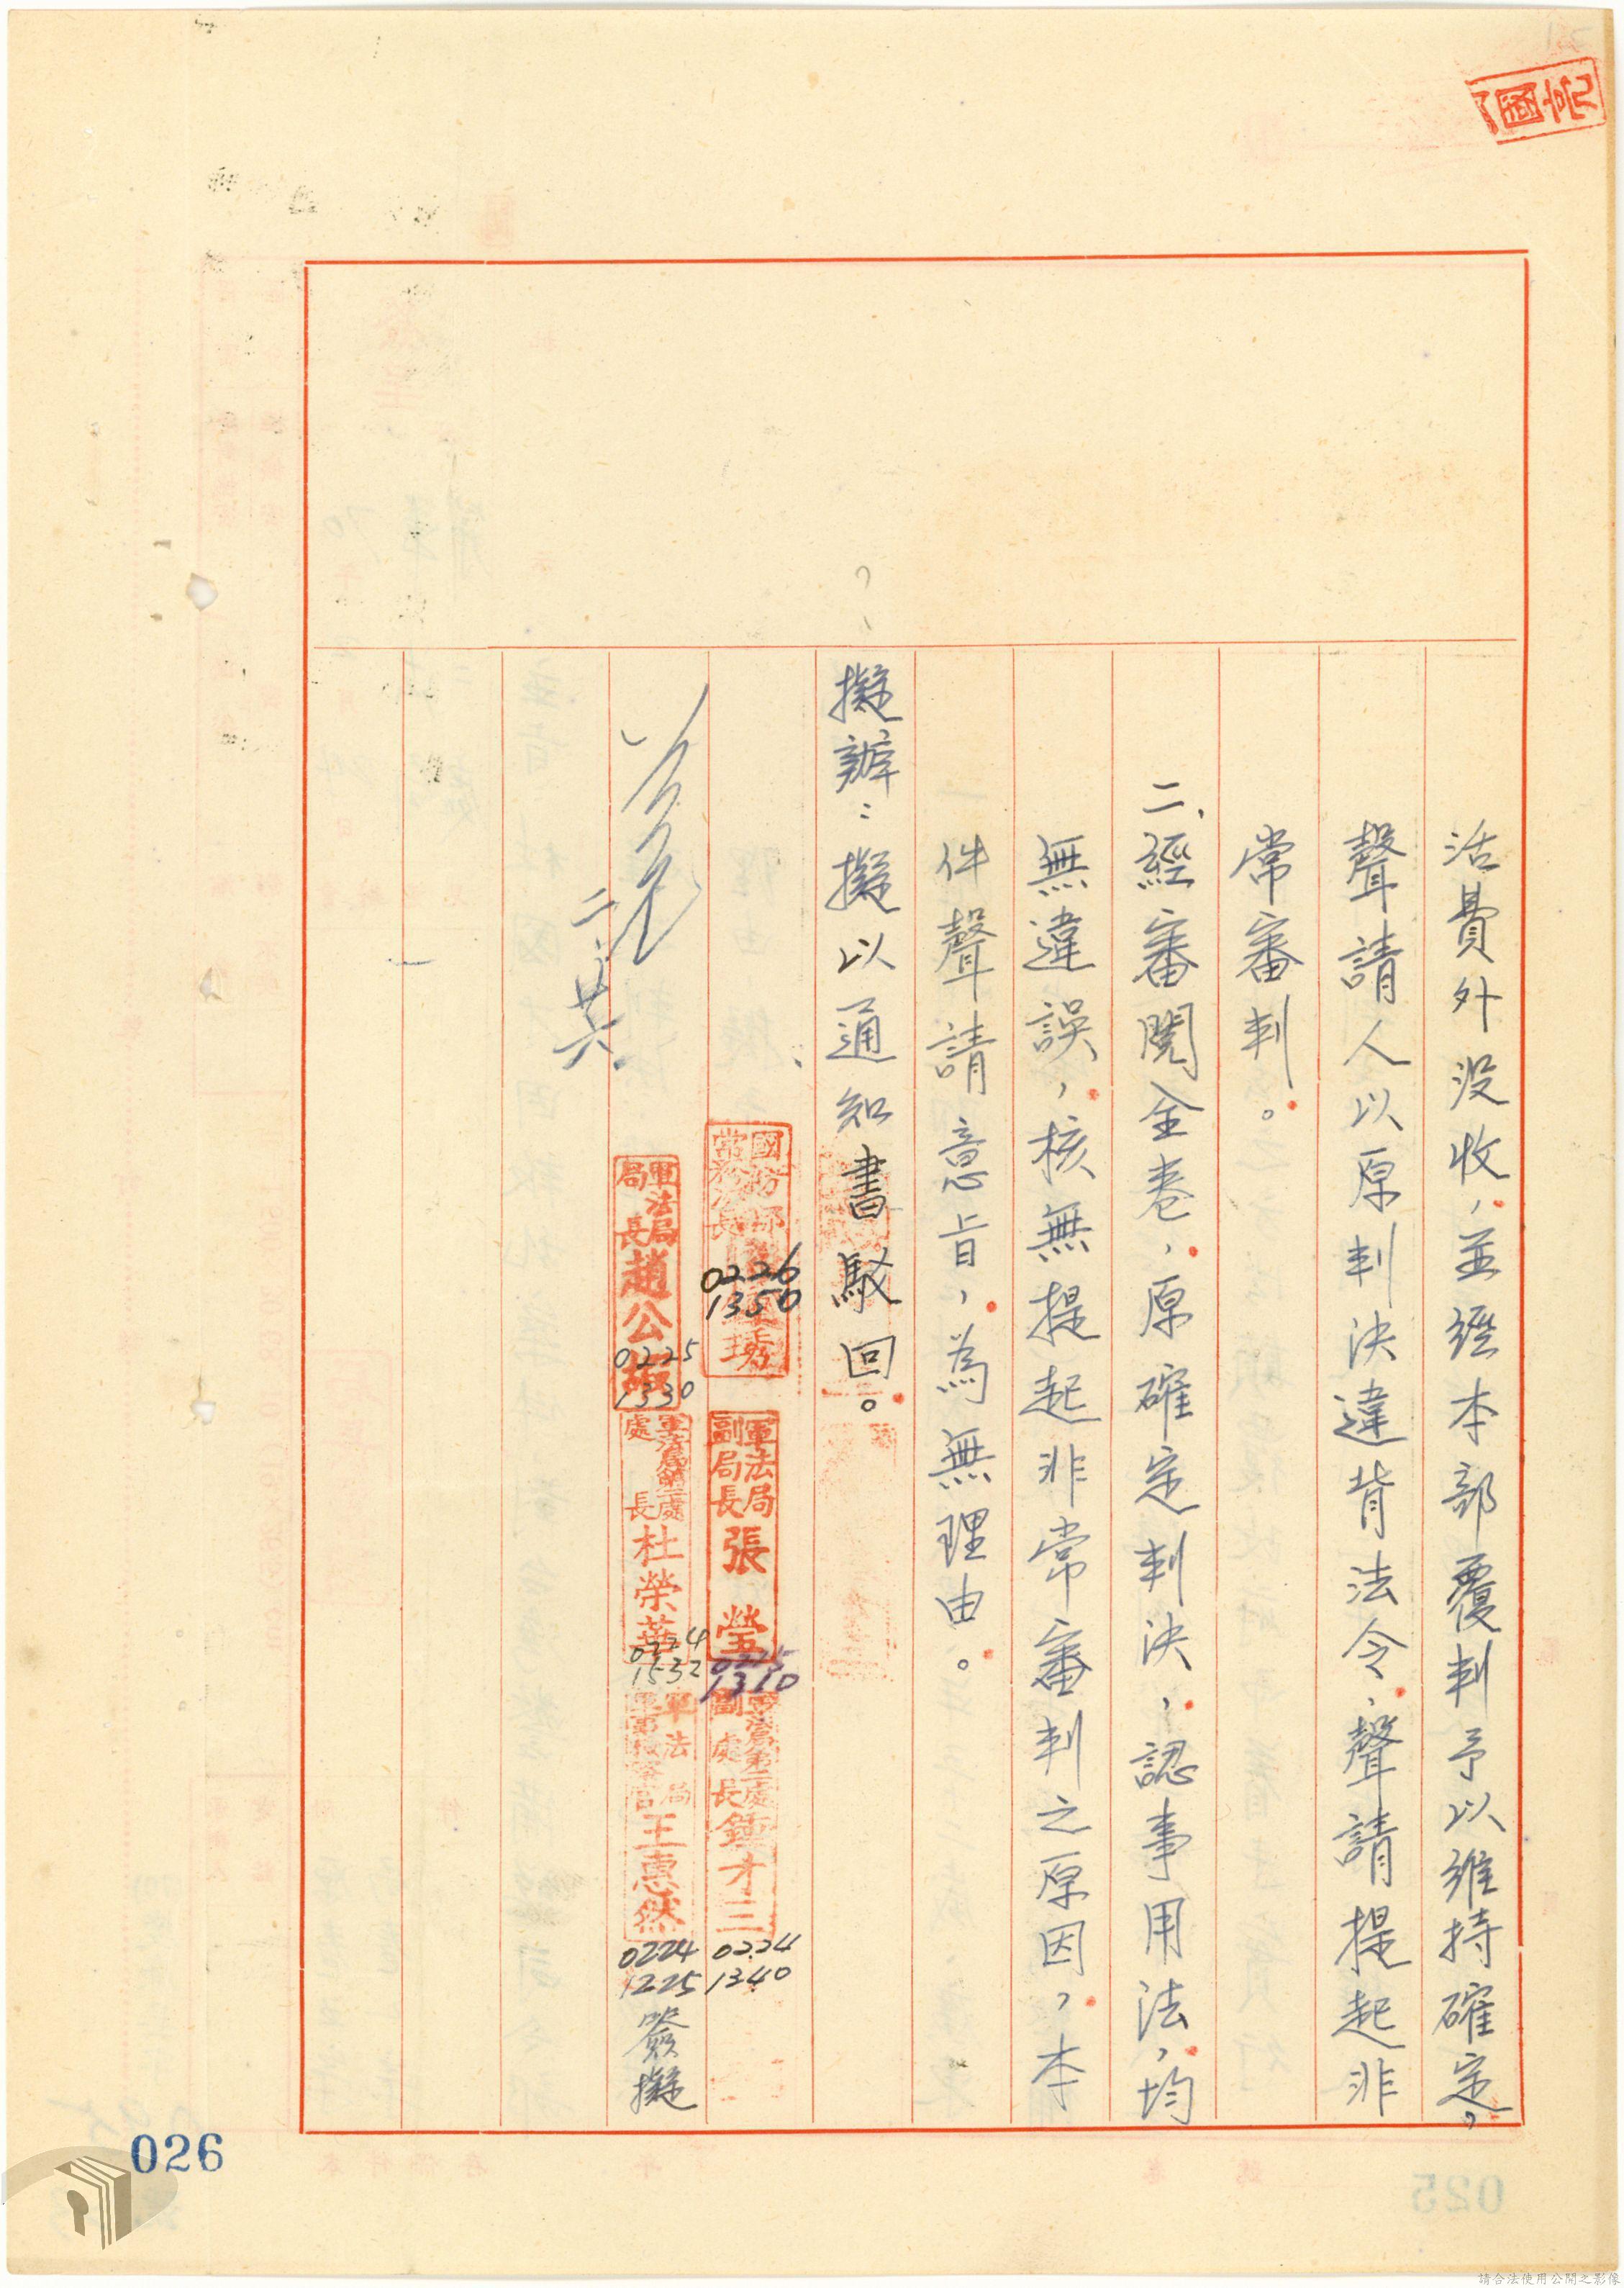 活費外没收，並經本部覆判予以維持確定，
聲請人以原判決違背法令，聲請提起非
常審判。
二、經審閱全卷，原確定判決，認事用法，均
無違誤，核無提起非常審判之原因，本
件聲請意旨，為無理由。
擬辦：擬以通知書駁回。
國防部
常務次長
0226
1350
軍法局
副局長
張瑩
1310
軍法局第二處
副處長
鍾才三
0224
1340
軍法局
局長
趙公
0225
1330
軍法局第二處
處長
杜榮華
0224
1532
軍法局
王惠然
0224
1225
簽擬
二、廿六、
026
025
請合法使用公開之影像